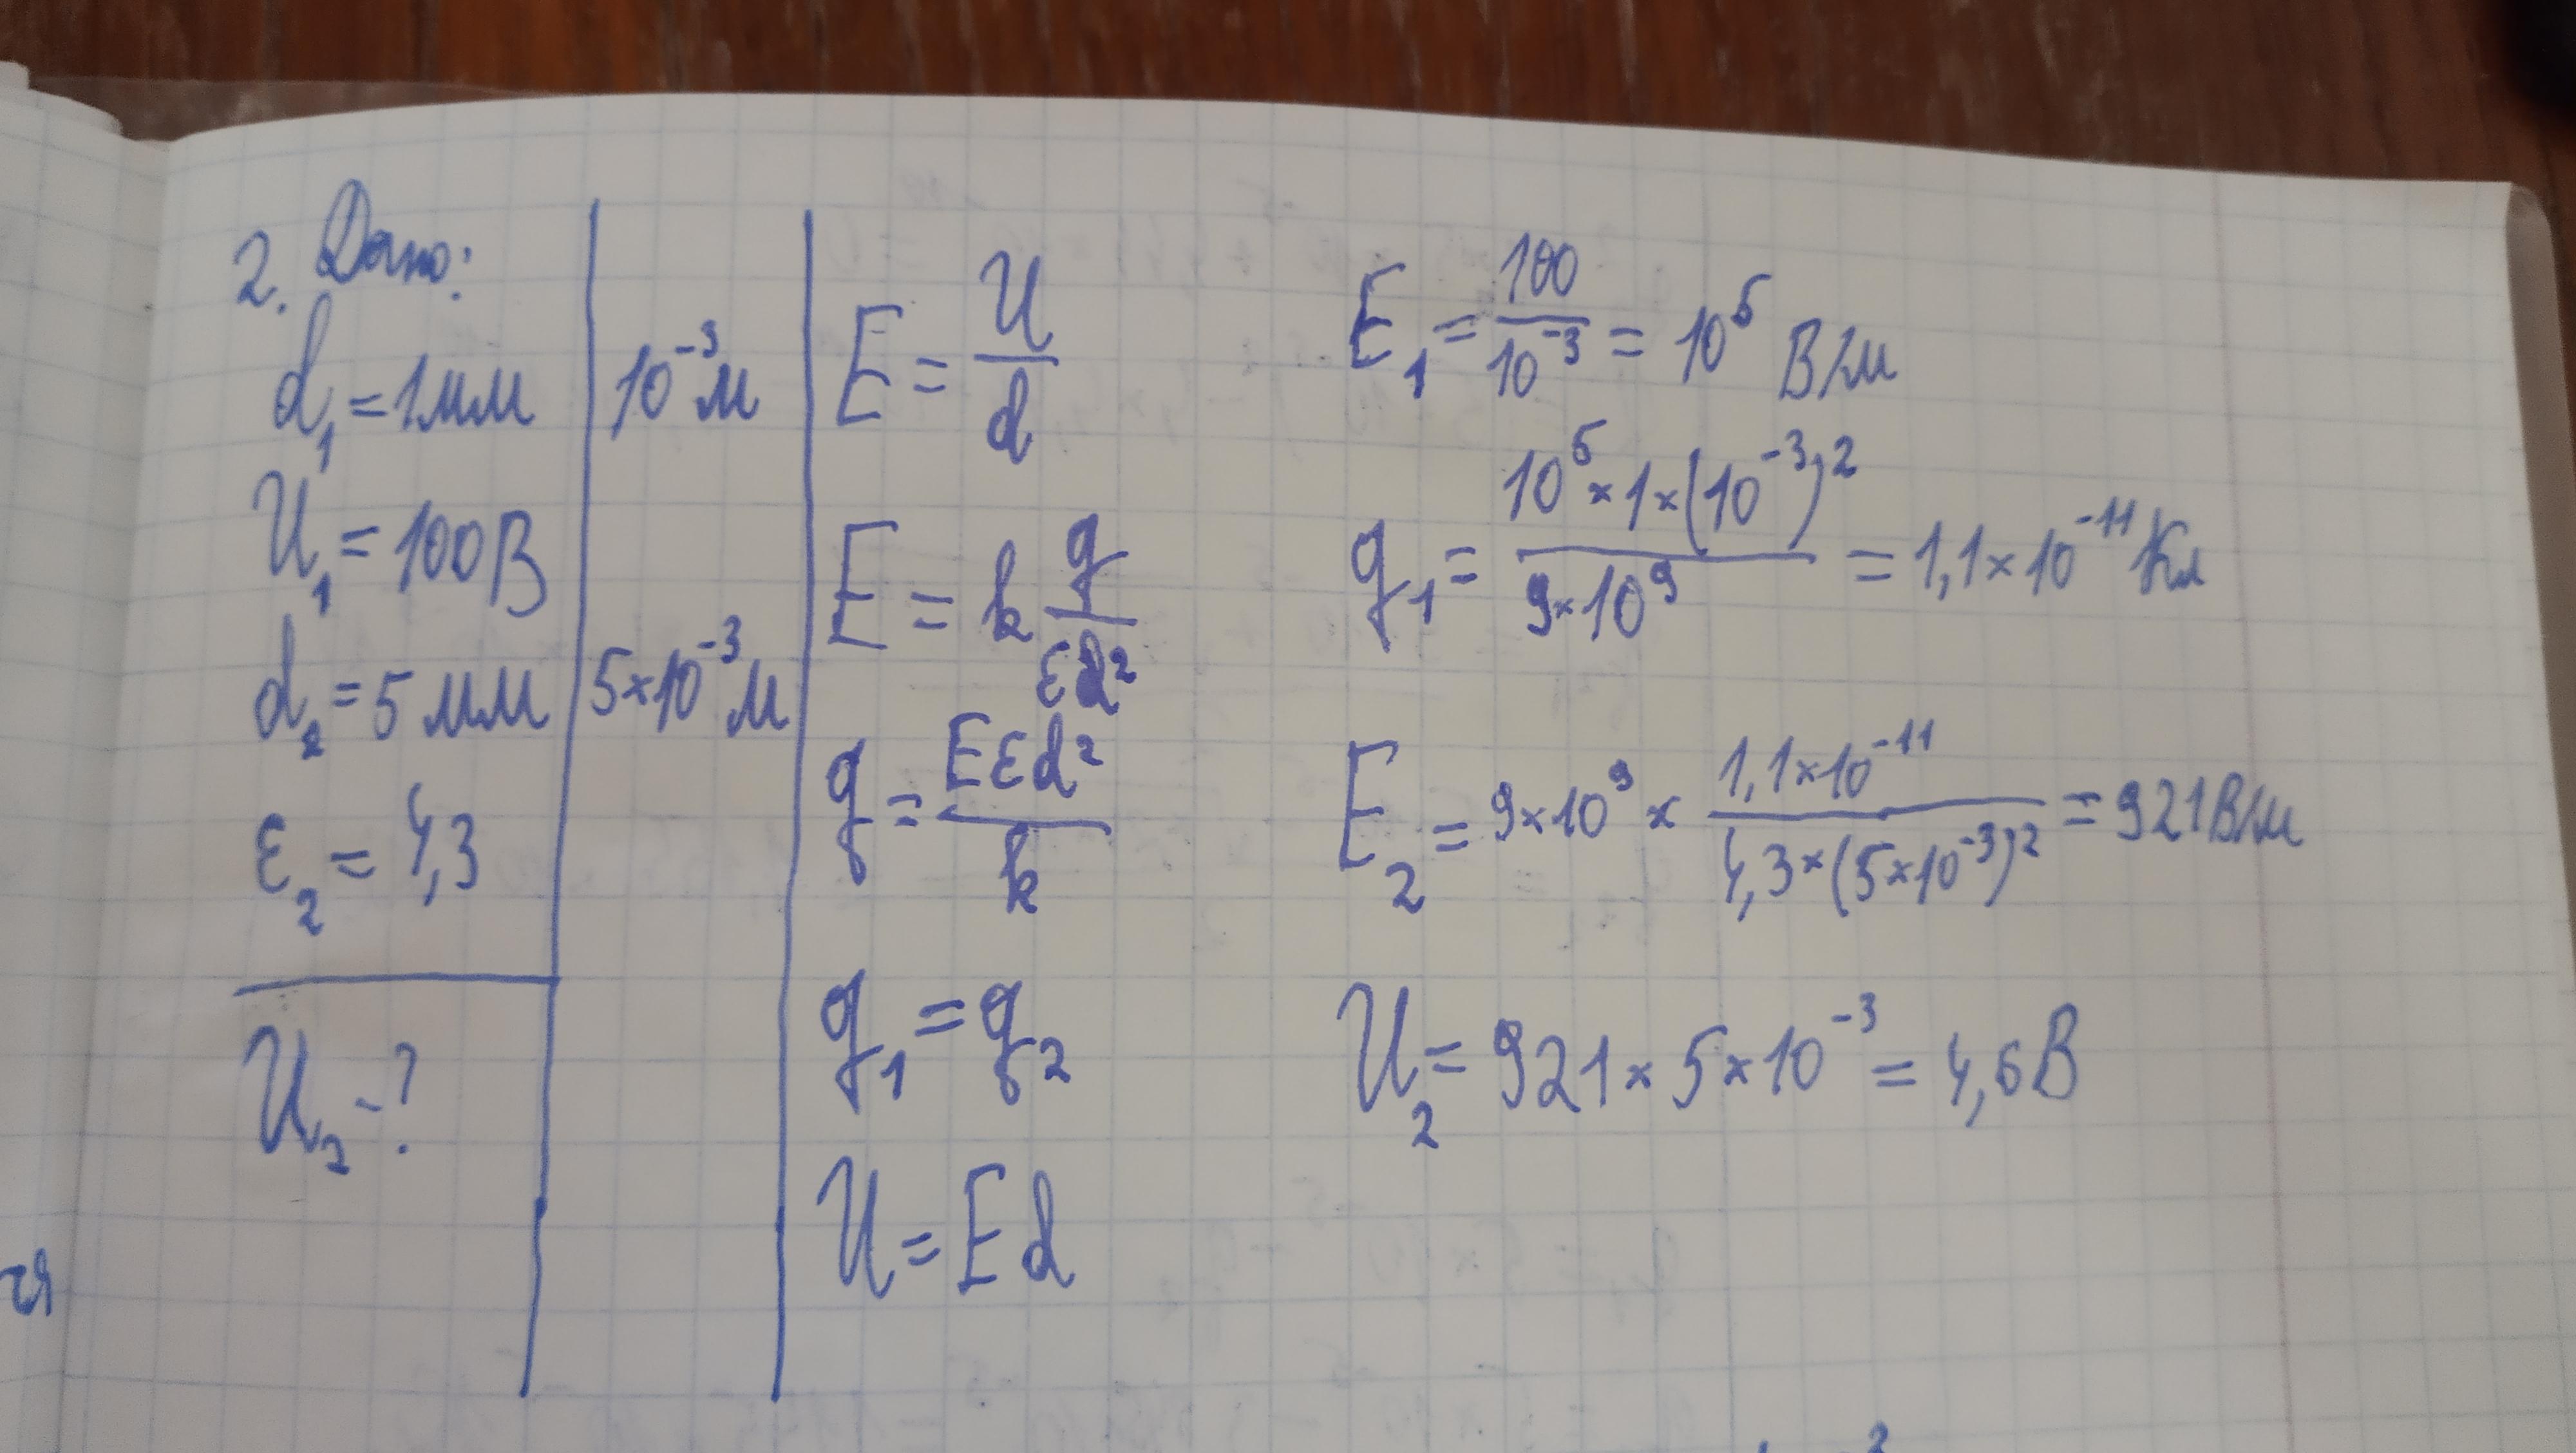 2. Дано:
d₁ = 1мм
U₁ = 100В
d₂ = 5 мм
ε₂ = 4,3
U₂ - ?
10⁻³м
5×10⁻³м
E = U/d
E = k q/εd²
q = Eεd²/k
q₁ = q₂
U = Ed
E₁ = 100/10⁻³ = 10⁵ В/м
q₁ = 10⁵×1×(10⁻³)²/9×10⁹ = 1,1×10⁻¹¹ Кл
E₂ = 9×10⁹ × 1,1×10⁻¹¹/4,3×(5×10⁻³)² = 921В/м
U₂ = 921×5×10⁻³ = 4,6В